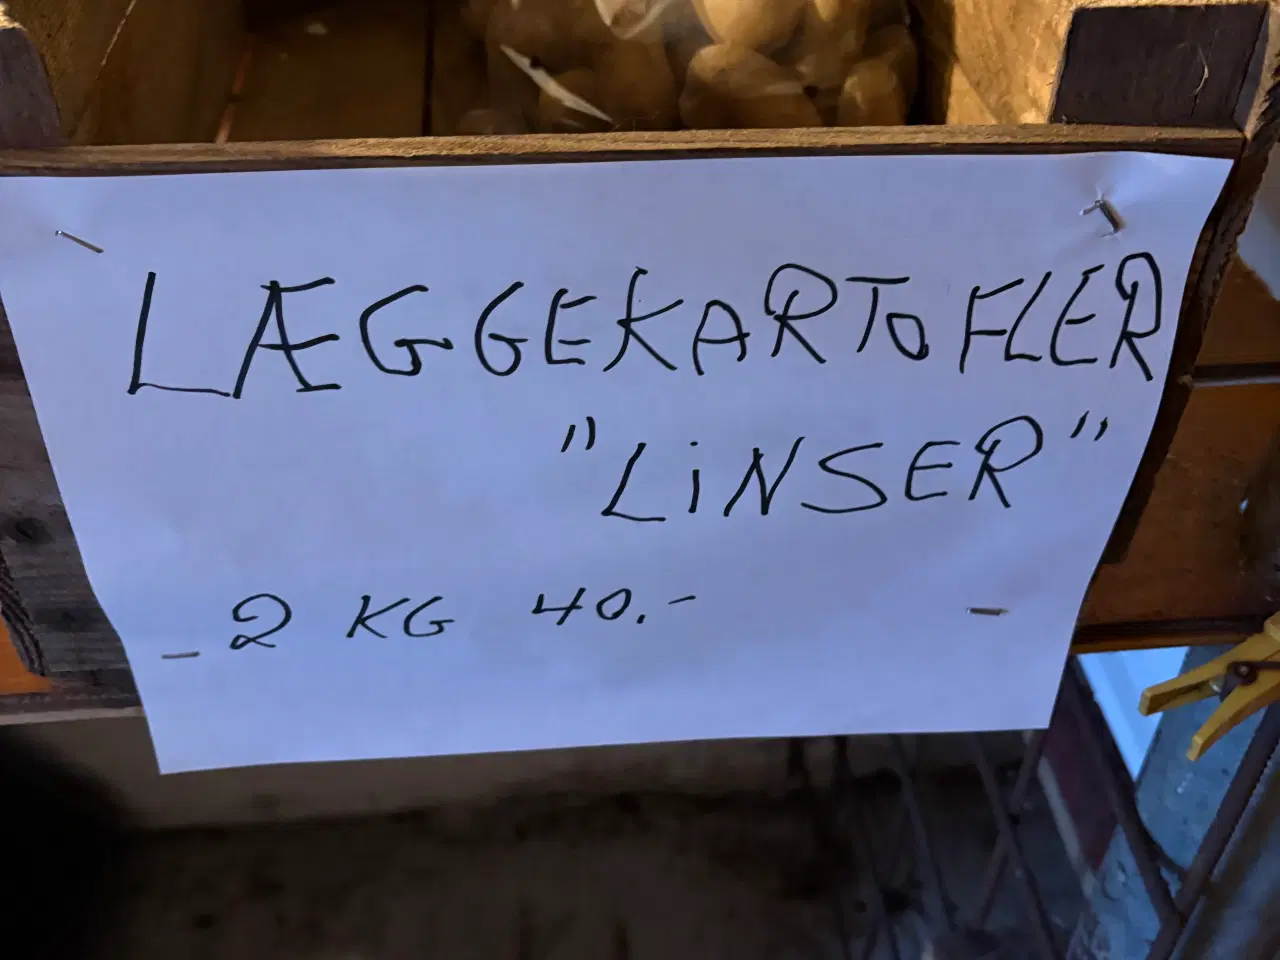 LÆGGEKARTOFLER
"LiNSER"
2 KG 40.-